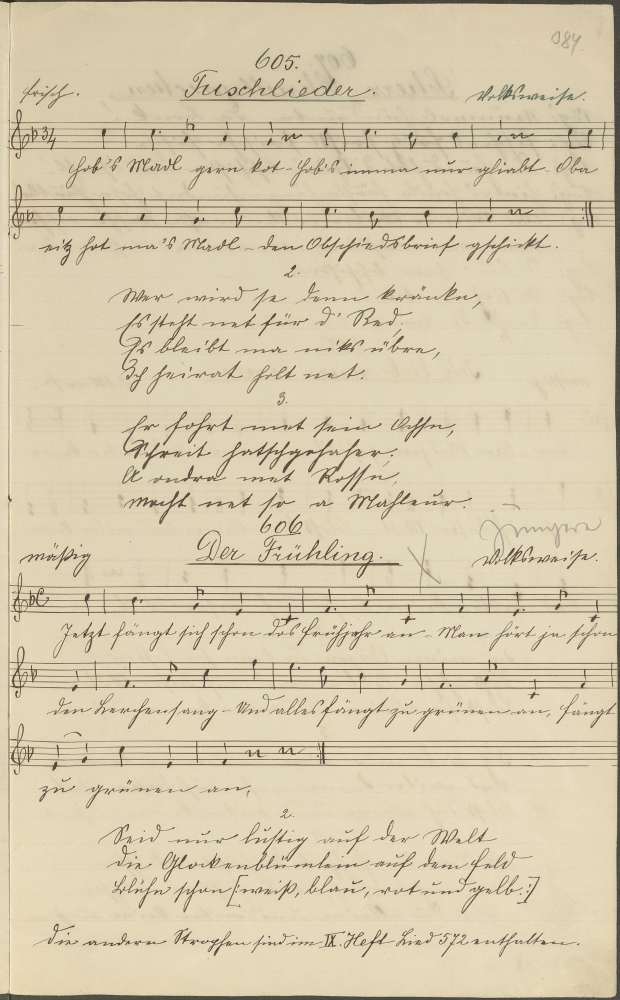 384.
605.
Tuschlieder.
frisch.
Volksweise.
hob's Madl gern kot - hob's imma nur gliabt - Oba
eitz hot ma's Madl - den Obschiedsbrief gschickt.
2.
Wer wird se denn kränke,
Es steht net für d' Red,
Is bleibt ma niks übre,
Ich heirat holt net.
3.
Er fohrt met sein Ochse,
Schreit
A ondra met Rosse,
mocht net so a Mahleur.
606
Der Frühling.
mäßig
Jüngere
Volksweise.
Jetzt fängt sich schon das Frühjahr an - Man hört ja schon
den Lerchensang - Und alles fängt zu grünen an, fängt
zu grünen an,
2.
Seid nur lustig auf der Welt
die Glockenblümlein auf dem Feld
blühn schon [: weiß, blau, rot und gelb. :]
die andern Strophen sind im IX. Heft Lied 572 enthalten.